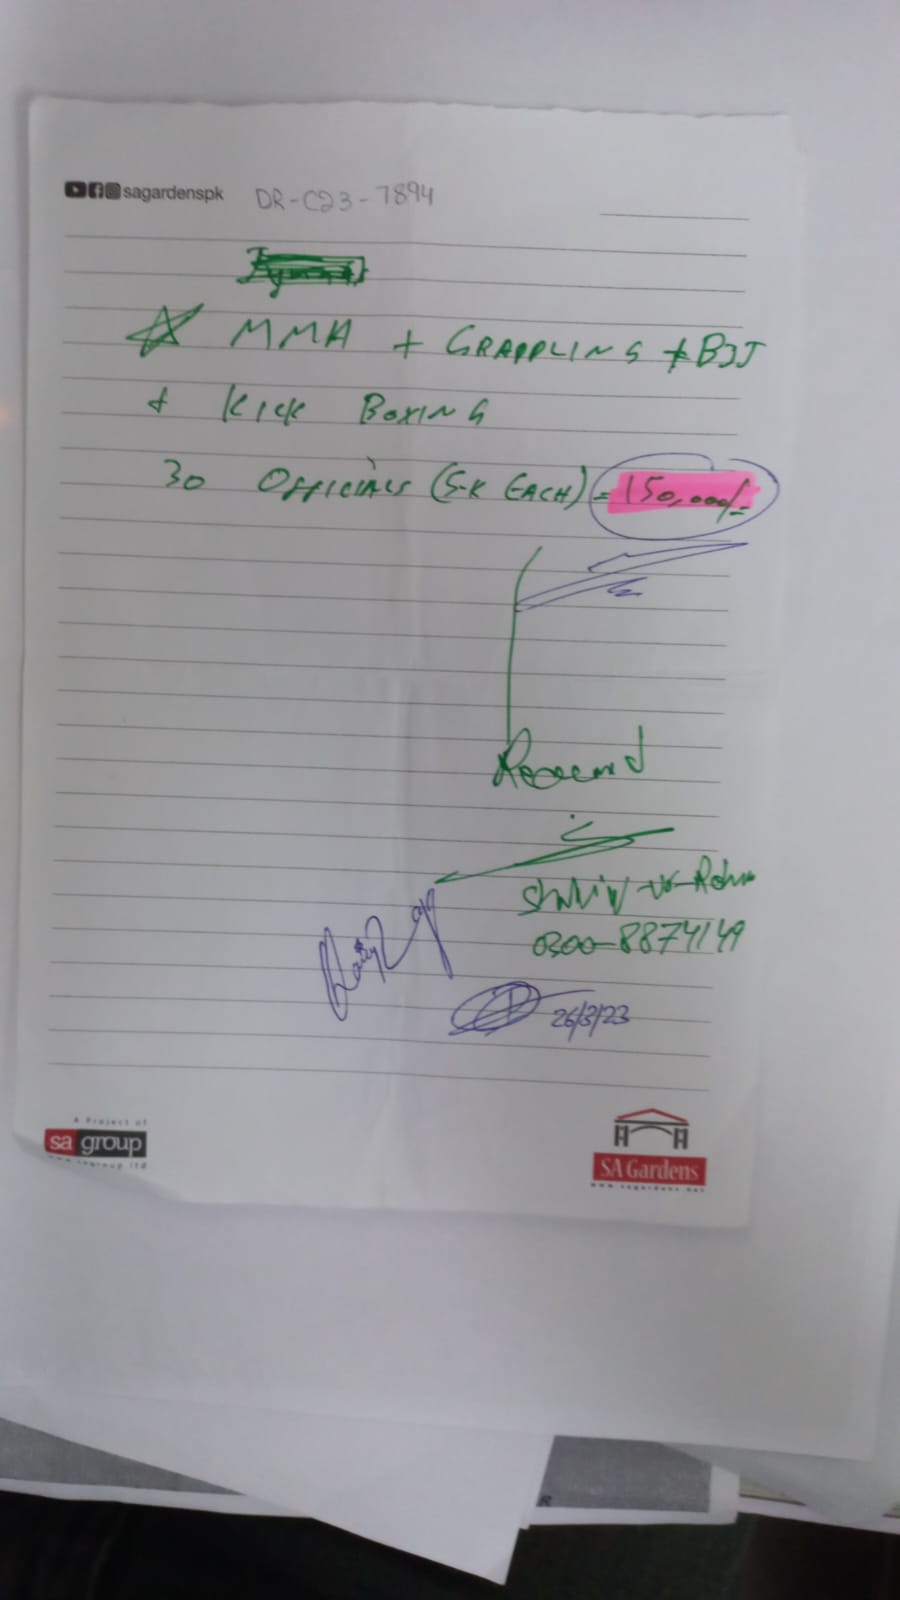 sagardenspk DR-C23-7894
☆ MMA + GRAPPLING + BJJ
+ KICK BOXING
30 OFFICIALS (5-K EACH) = 150,000/-
Received
0300-8874149
26/3/23
A Project of
sa group
SA Gardens
www.sagardens.net